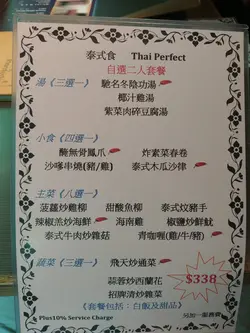 泰式食 Thai Perfect
自選二人套餐
湯《三選一》 馳名冬陰功湯
椰汁雞湯
紫菜肉碎豆腐湯
小食《四選一》
醃無骨鳳爪 炸素菜春卷
沙嗲串燒(豬/雞) 泰式木瓜沙律
主菜《八選一》
菠蘿炒雞柳 甜酸魚柳 泰式炆豬手
辣椒羔炒海鮮 海南雞 椒鹽炒鮮魷
泰式牛肉炒雜菇 青咖喱(雞/牛/豬)
蔬菜《三選一》 飛天炒通菜
蒜蓉炒西蘭花
招牌清炒雜菜
$338
《套餐包括：白飯及甜品》
Plus10% Service Charge 另加一服務費